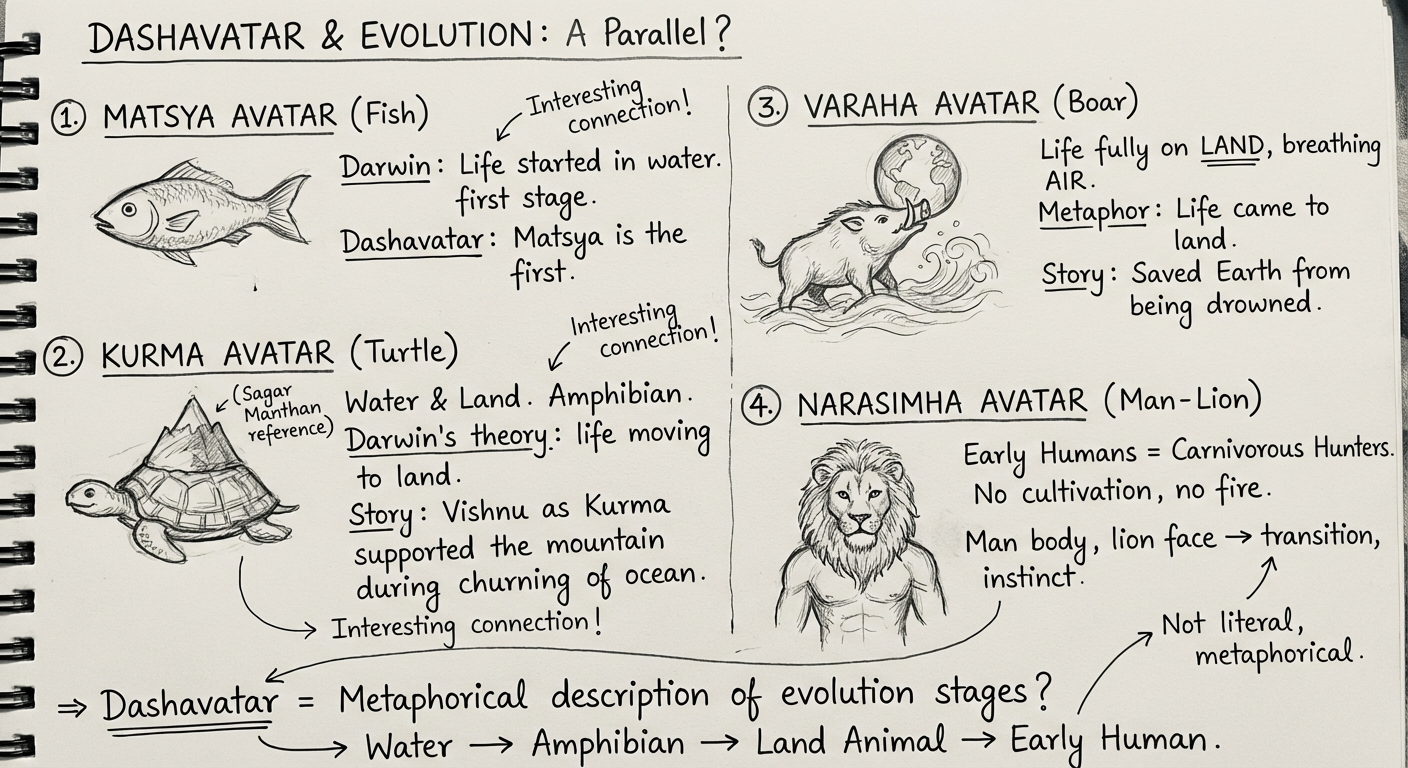 DASHAVATAR & EVOLUTION: A Parallel?
1. MATSYA AVATAR (Fish)
Interesting
connection!
Darwin: Life started in water.
first stage.
Dashavatar: Matsya is the
first.
2. KURMA AVATAR (Turtle)
Interesting
connection!
(Sagar
Manthan
reference)
Water & Land. Amphibian.
Darwin's theory: life moving
to land.
Story: Vishnu as Kurma
supported the mountain
during churning of ocean.
Interesting connection!
3. VARAHA AVATAR (Boar)
Life fully on LAND, breathing
AIR.
Metaphor: Life came to
land.
Story: Saved Earth from
being drowned.
4. NARASIMHA AVATAR (Man-Lion)
Early Humans = Carnivorous Hunters.
No cultivation, no fire.
Man body, lion face → transition,
instinct.
Not literal,
metaphorical.
⇒ Dashavatar = Metaphorical description of evolution stages?
→ Water → Amphibian → Land Animal → Early Human.